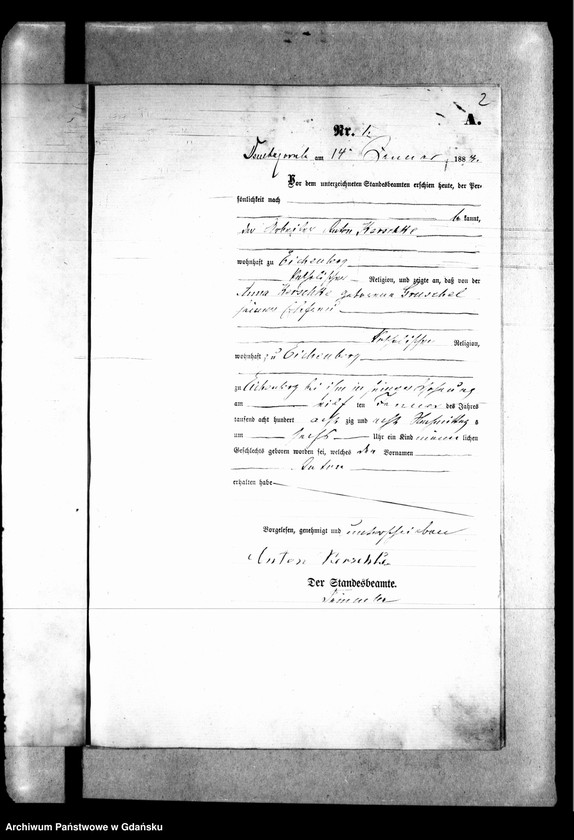 2
A.
Nr. 2.
am 14 Januar 1888.
Vor dem unterzeichneten Standesbeamten erschien heute, der Per-
sönlichkeit nach
be kannt,
der Arbeiter Anton Kerschke
wohnhaft zu Eichenberg
katholischer Religion, und zeigte an, daß von der
Anna Kerschke geborene Gruschel
seiner Ehefrau
katholischer Religion,
wohnhaft zu Eichenberg
zu Eichenberg bei ihm in seiner Wohnung
am ten Januar des Jahres
tausend acht hundert acht zig und acht Nachmittag s
um sechs Uhr ein Kind männ lichen
Geschlechts geboren worden sei, welches den Vornamen
Anton
erhalten habe
Vorgelesen, genehmigt und unterschrieben
Anton Kerschke
Der Standesbeamte.
Archiwum Państwowe w Gdańsku